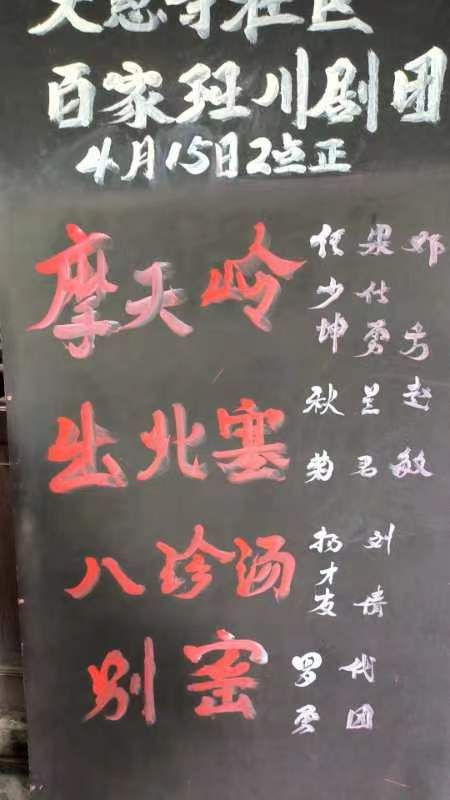 大慈寺社区
百家班川剧团
4月15日2点正
摩天岭 任少坤 果仕勇 邓秀
出北塞 秋菊 兰君 赵敏
八珍汤 杨才友 刘倩
别窑 罗勇 代团